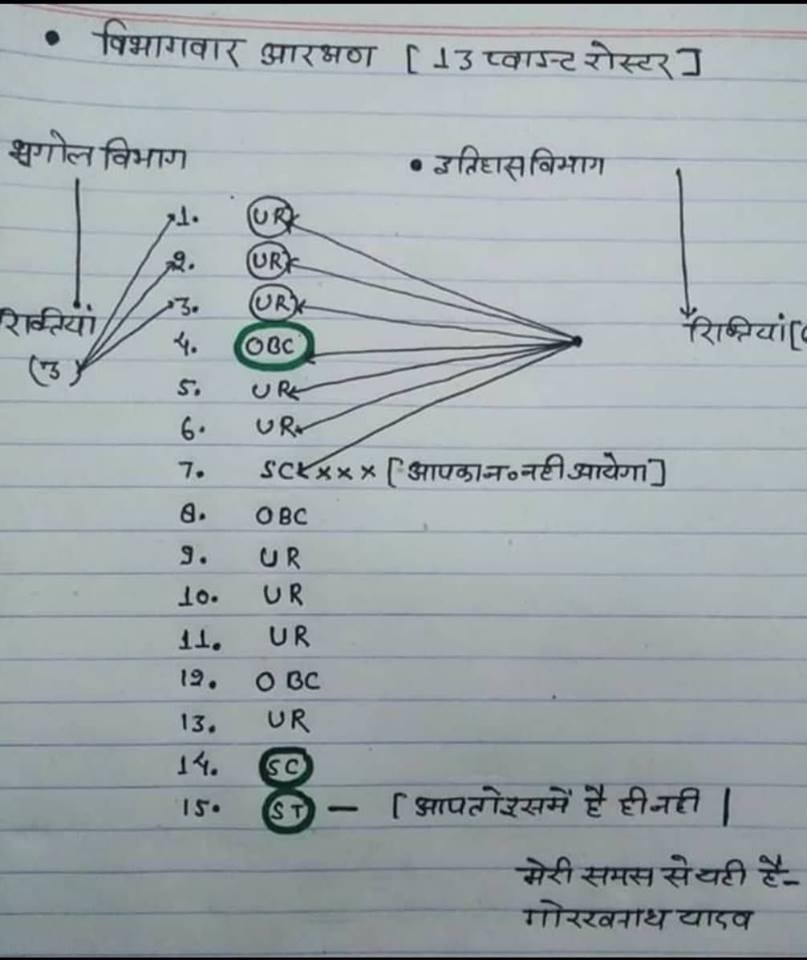 • विभागवार आरक्षण [ 13 प्वाइन्ट रोस्टर ]
भूगोल विभाग
• इतिहास विभाग
1. UR
2. UR
3. UR
रिक्तियां
रिक्तियां
(3)
4. OBC
5. UR
6. UR
7. SC ××× [ आपका न० नही आयेगा ]
8. OBC
9. UR
10. UR
11. UR
12. OBC
13. UR
14. SC
15. ST — [ आप तो इसमें है ही नही |
मेरी समस से यही है-
गोरखनाथ यादव